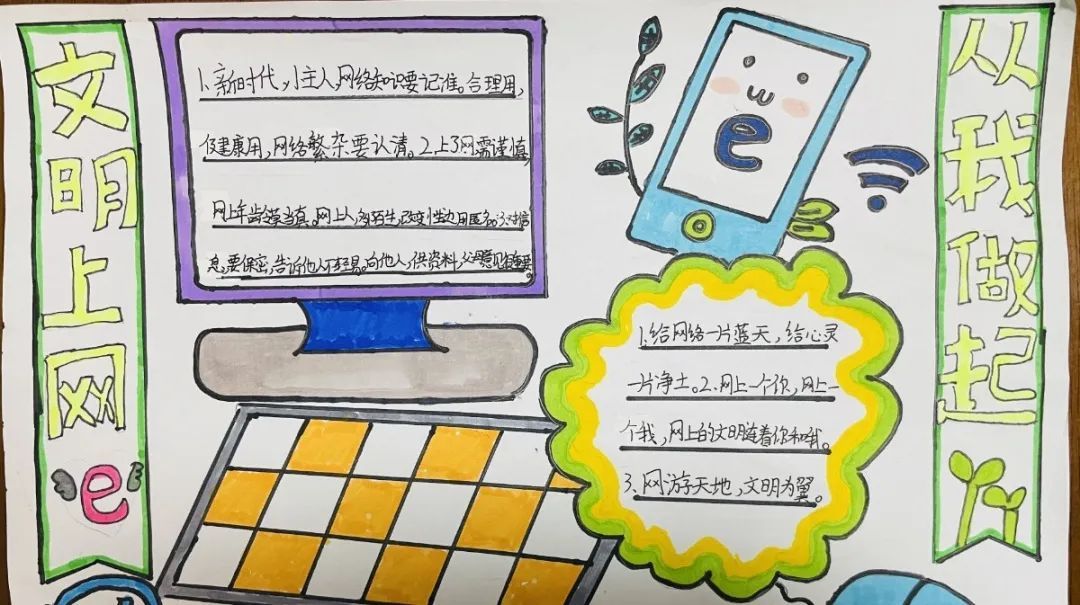 文明上网
e
1.新时代,小主人,网络知识要记准。合理用,
健康用,网络繁杂要认清。2.上了网需谨慎,
网上年龄莫当真。网上人,多陌生,改变性别用匿名。3.对信
息,要保密,告诉他人不轻易。向他人,供资料,父母意见很重要。
e
1.给网络一片蓝天,给心灵
一片净土。2.网上一个你,网上一
个我,网上的文明随着你和我。
3.网游天地,文明为翼。
从我做起